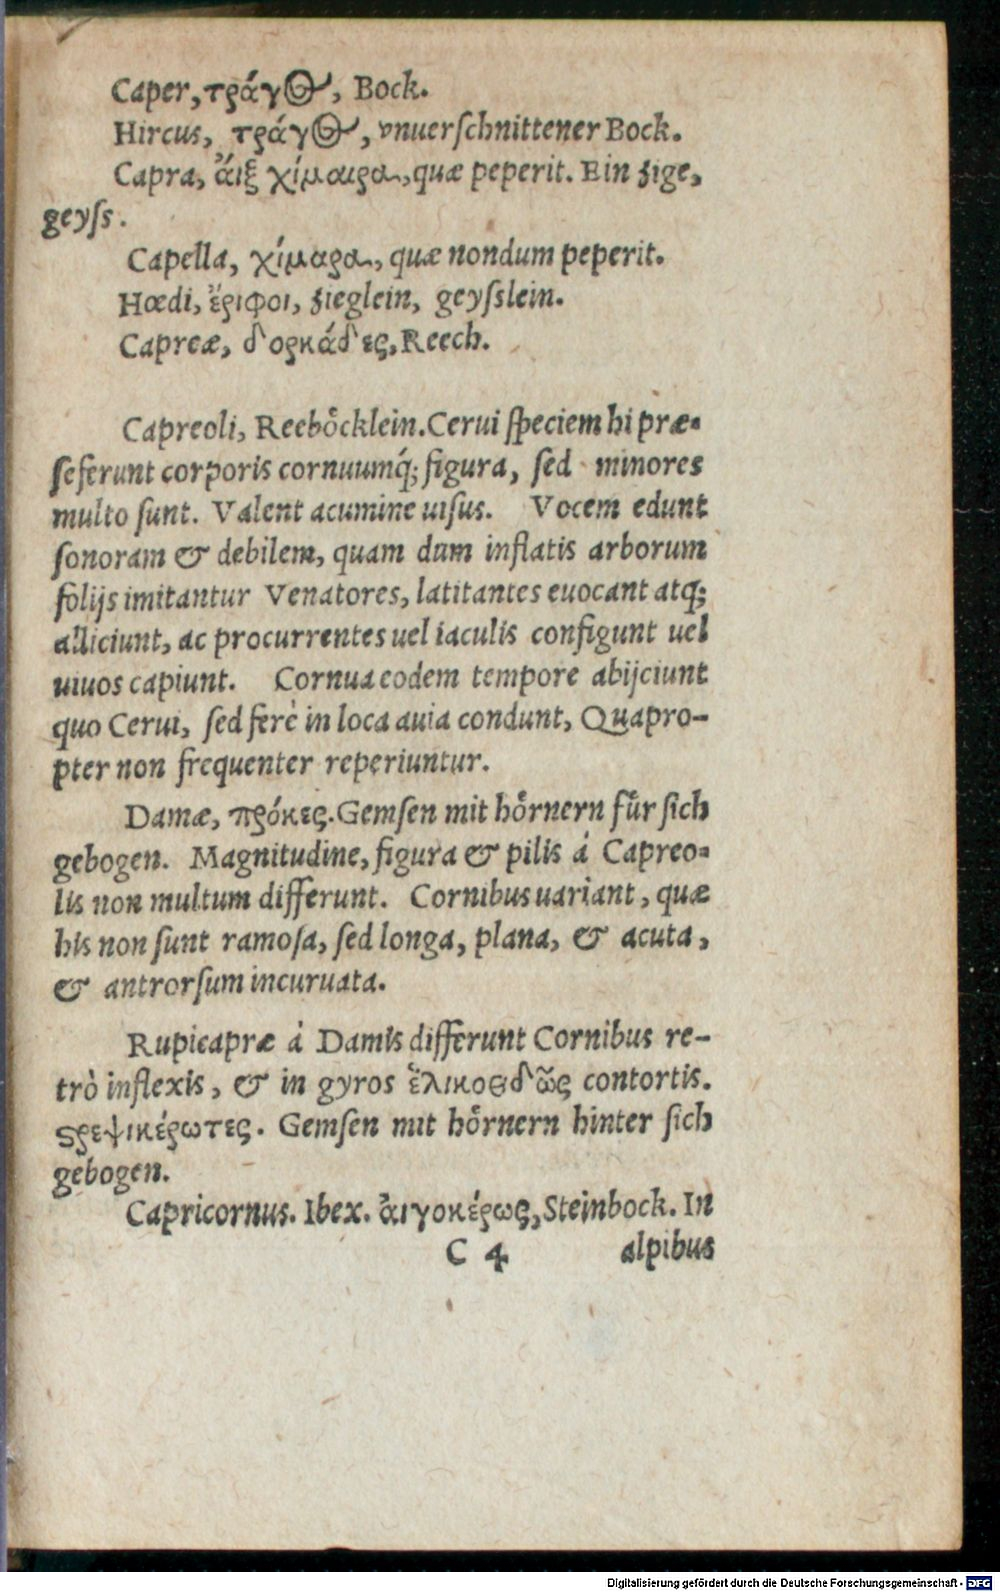 Caper, τράγος, Bock.
Hircus, τράγος, vnuerſchnittener Bock.
Capra, ἄιξ χίμαιρα, quæ peperit. Ein zige,
geyſs.
Capella, χίμαρα, quæ nondum peperit.
Hœdi, ἔριφοι, zieglein, geyſslein.
Capreæ, δορκάδες, Reech.
Capreoli, Reeboͤcklein. Cerui ſpeciem hi præ-
ſeferunt corporis cornuumq́; figura, ſed minores
multo ſunt. Valent acumine uiſus. Vocem edunt
ſonoram & debilem, quam dum inflatis arborum
folijs imitantur Venatores, latitantes euocant atq;
alliciunt, ac procurrentes uel iaculis configunt uel
uiuos capiunt. Cornua eodem tempore abijciunt
quo Cerui, ſed ferè in loca auia condunt, Quapro-
pter non frequenter reperiuntur.
Damæ, πρόκες. Gemſen mit hoͤrnern fuͤr ſich
gebogen. Magnitudine, figura & pilis á Capreo-
lis non multum differunt. Cornibus uariant, quæ
his non ſunt ramoſa, ſed longa, plana, & acuta,
& antrorſum incuruata.
Rupicapræ á Damis differunt Cornibus re-
trò inflexis, & in gyros ἑλικοειδῶς contortis.
ϛρεψικέρωτες. Gemſen mit hoͤrnern hinter ſich
gebogen.
Capricornus. Ibex. ἀιγοκέρως, Steinbock. In
C 4 alpibus
Digitalisierung gefördert durch die Deutsche Forschungsgemeinschaft - DFG